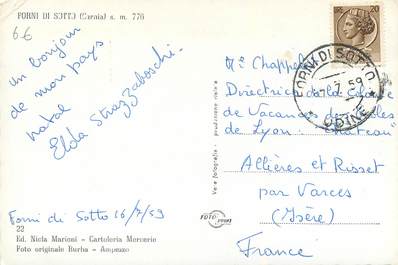 FORNI DI SOTTO (Carnia) s. m. 776
6€
un bonjour
de mon pays
natal
Elda Strazzaboschi-
Forni di Sotto 16/7/59
22
Ed. Nicla Marioni - Cartoleria Mercerie
Foto originale Burba - Ampezzo
Vera fotografia -
FOTO
20
FORNI DI SOTTO
UDINE
Chappel
Directrice de la Colonie
de Vacances des Ecoles
de Lyon. Chateau
Allières et Risset
par Varces
(Isère)
France